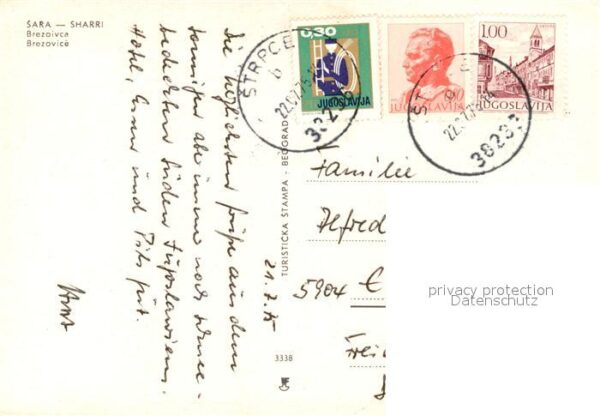 ŠARA — SHARRI
Brezoivca
Brezovicë
Die herzlichsten Grüße aus dem
sonnigen aber immer noch schnee-
bedeckten Süden Jugoslawiens.
Hotel, Essen und Pils gut.
21.7.75
TURISTIČKA ŠTAMPA - BEOGRAD
3338
0,30
JUGOSLAVIJA
JUGOSLAVIJA
1.00
JUGOSLAVIJA
ŠTRPCE
b
22.07.75
38239
ŠT E
22.7.75
38239
Familie
Alfred
5904 E
privacy protection
Datenschutz